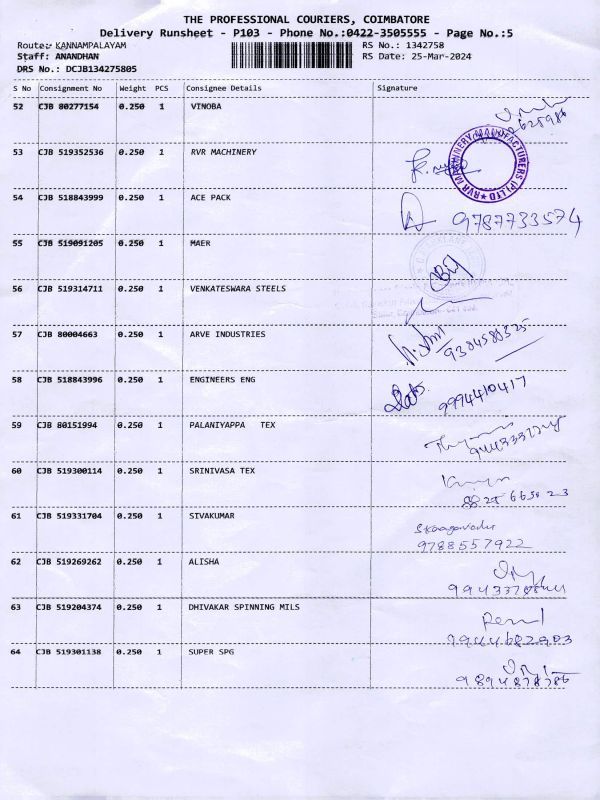 THE PROFESSIONAL COURIERS, COIMBATORE
Delivery Runsheet - P103 - Phone No.:0422-3505555 - Page No.:5
Route: KANNAMPALAYAM RS No.: 1342758
Staff: ANANDHAN RS Date: 25-Mar-2024
DRS No.: DCJB134275805
S No Consignment No Weight PCS Consignee Details Signature
52 CJB 80277154 0.250 1 VINOBA
53 CJB 519352536 0.250 1 RVR MACHINERY
RVR MACHINERY MANUFACTURERS (P) LTD
54 CJB 518843999 0.250 1 ACE PACK
9787733574
55 CJB 519091205 0.250 1 MAER
56 CJB 519314711 0.250 1 VENKATESWARA STEELS
57 CJB 80004663 0.250 1 ARVE INDUSTRIES
9384583325
58 CJB 518843996 0.250 1 ENGINEERS ENG
9994410417
59 CJB 80151994 0.250 1 PALANIYAPPA TEX
60 CJB 519300114 0.250 1 SRINIVASA TEX
61 CJB 519331704 0.250 1 SIVAKUMAR
9788557922
62 CJB 519269262 0.250 1 ALISHA
63 CJB 519204374 0.250 1 DHIVAKAR SPINNING MILS
7944682983
64 CJB 519301138 0.250 1 SUPER SPG
9894878786